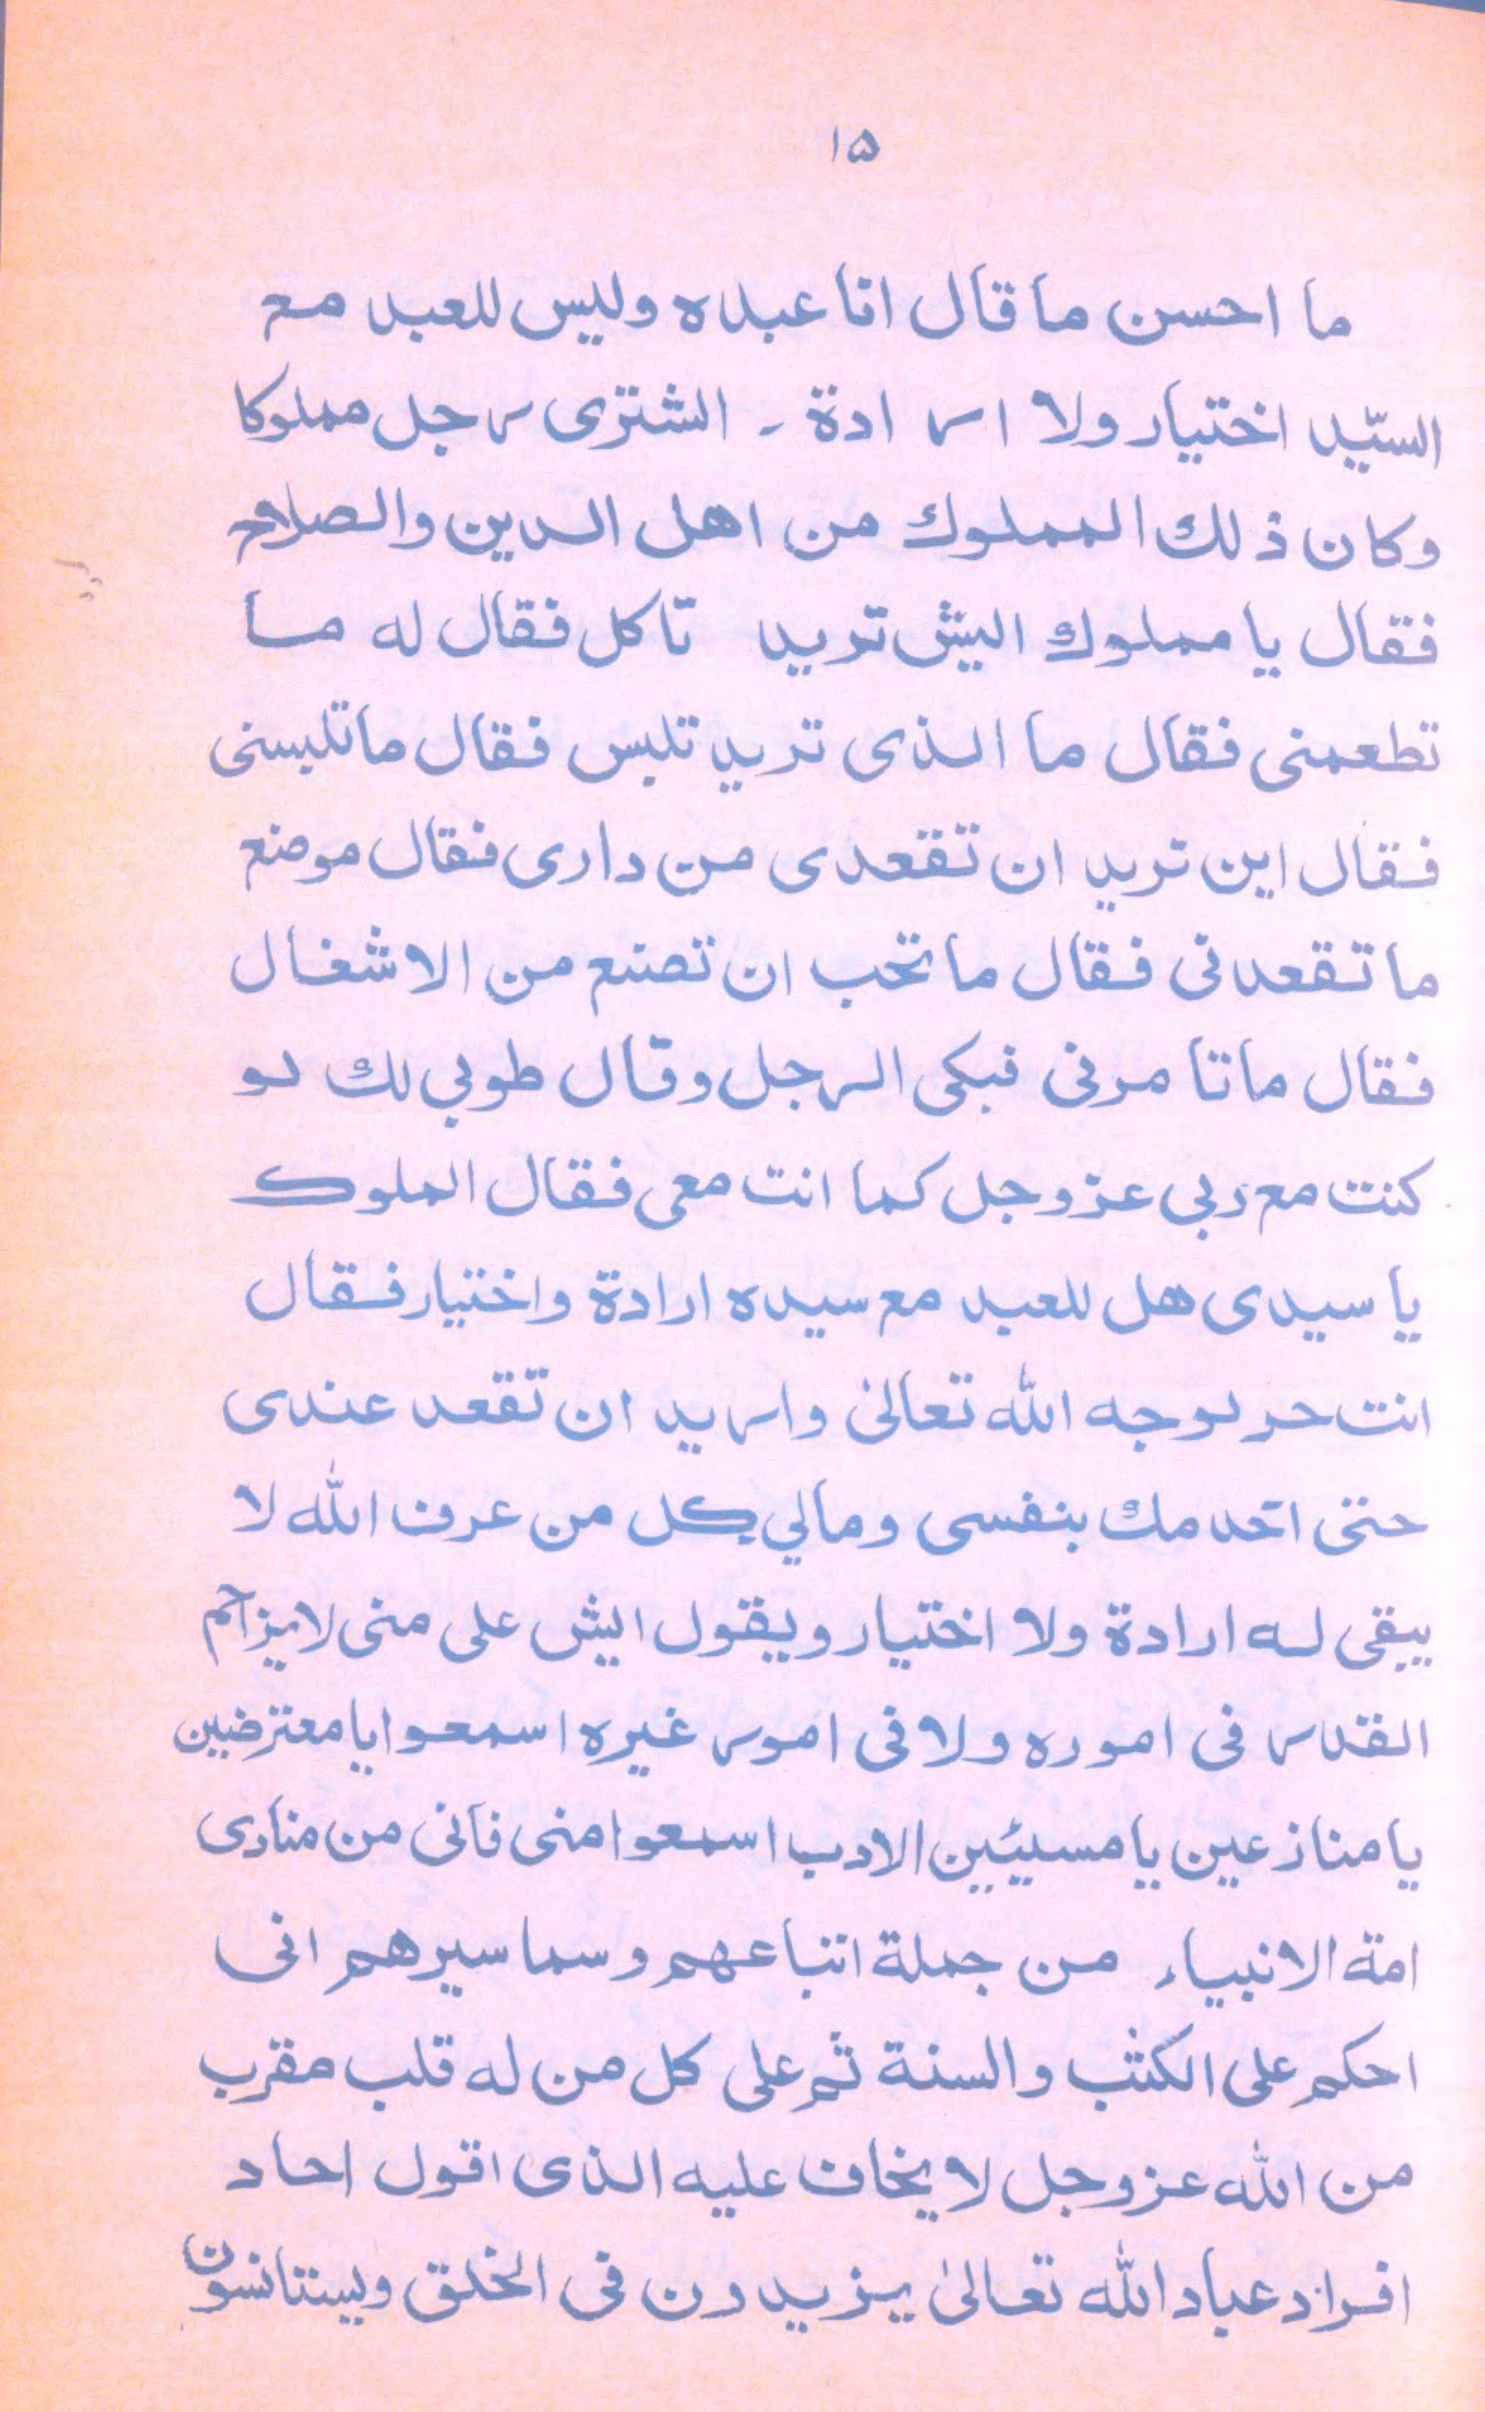 ۱۵
ما احسن ما قال انا عبده وليس للعبد مع
السيّد اختيار ولا ارادة ۔ الشترى رجل مملوكا
وكان ذلك المملوك من اهل الدين والصلاح
فقال يا مملوك اليش تريد تاكل فقال له ما
تطعمنى فقال ما الذى تريد تلبس فقال ما تلبسنى
فقال اين تريد ان تقعدى من دارى فقال موضع
ما تقعدنى فقال ما تحب ان تصنع من الاشغال
فقال ما تا مرنى فبكى الرجل وقال طوبي لك لو
كنت مع ربى عز وجل كما انت معى فقال الملوك
يا سيدى هل للعبد مع سيده ارادة واختيار فقال
انت حر لوجه الله تعالىٰ واريد ان تقعد عندى
حتى اخدمك بنفسى ومالي كل من عرف الله لا
يبقى له ارادة ولا اختيار ويقول ايش على منى لا يزاحم
القدر فى اموره ولا فى امور غيره اسمعوا يا معترضين
يا منازعين يا مسيئين الادب اسمعوا منى فانى من منادى
امة الانبياء من جملة اتباعهم وسماسيرهم انى
احكم على الكتٰب والسنة ثم على كل من له قلب مقرب
من الله عز وجل لا يخاف عليه الذى اقول احاد
افراد عباد الله تعالىٰ يزيدون فى الخلق ويستانسون